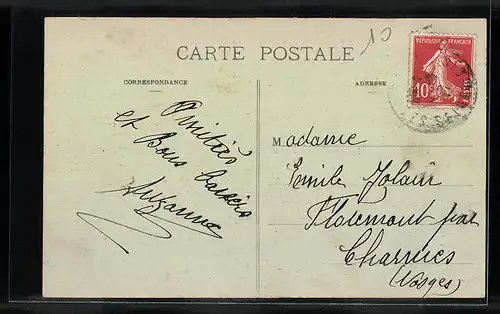 10
CARTE POSTALE
REPUBLIQUE FRANÇAISE
10c
CORRESPONDANCE
ADRESSE
Amitiés
et Bons baisers
Suzanne
Madame
Emile Jolain
Florémont par
Charmes
(Vosges)